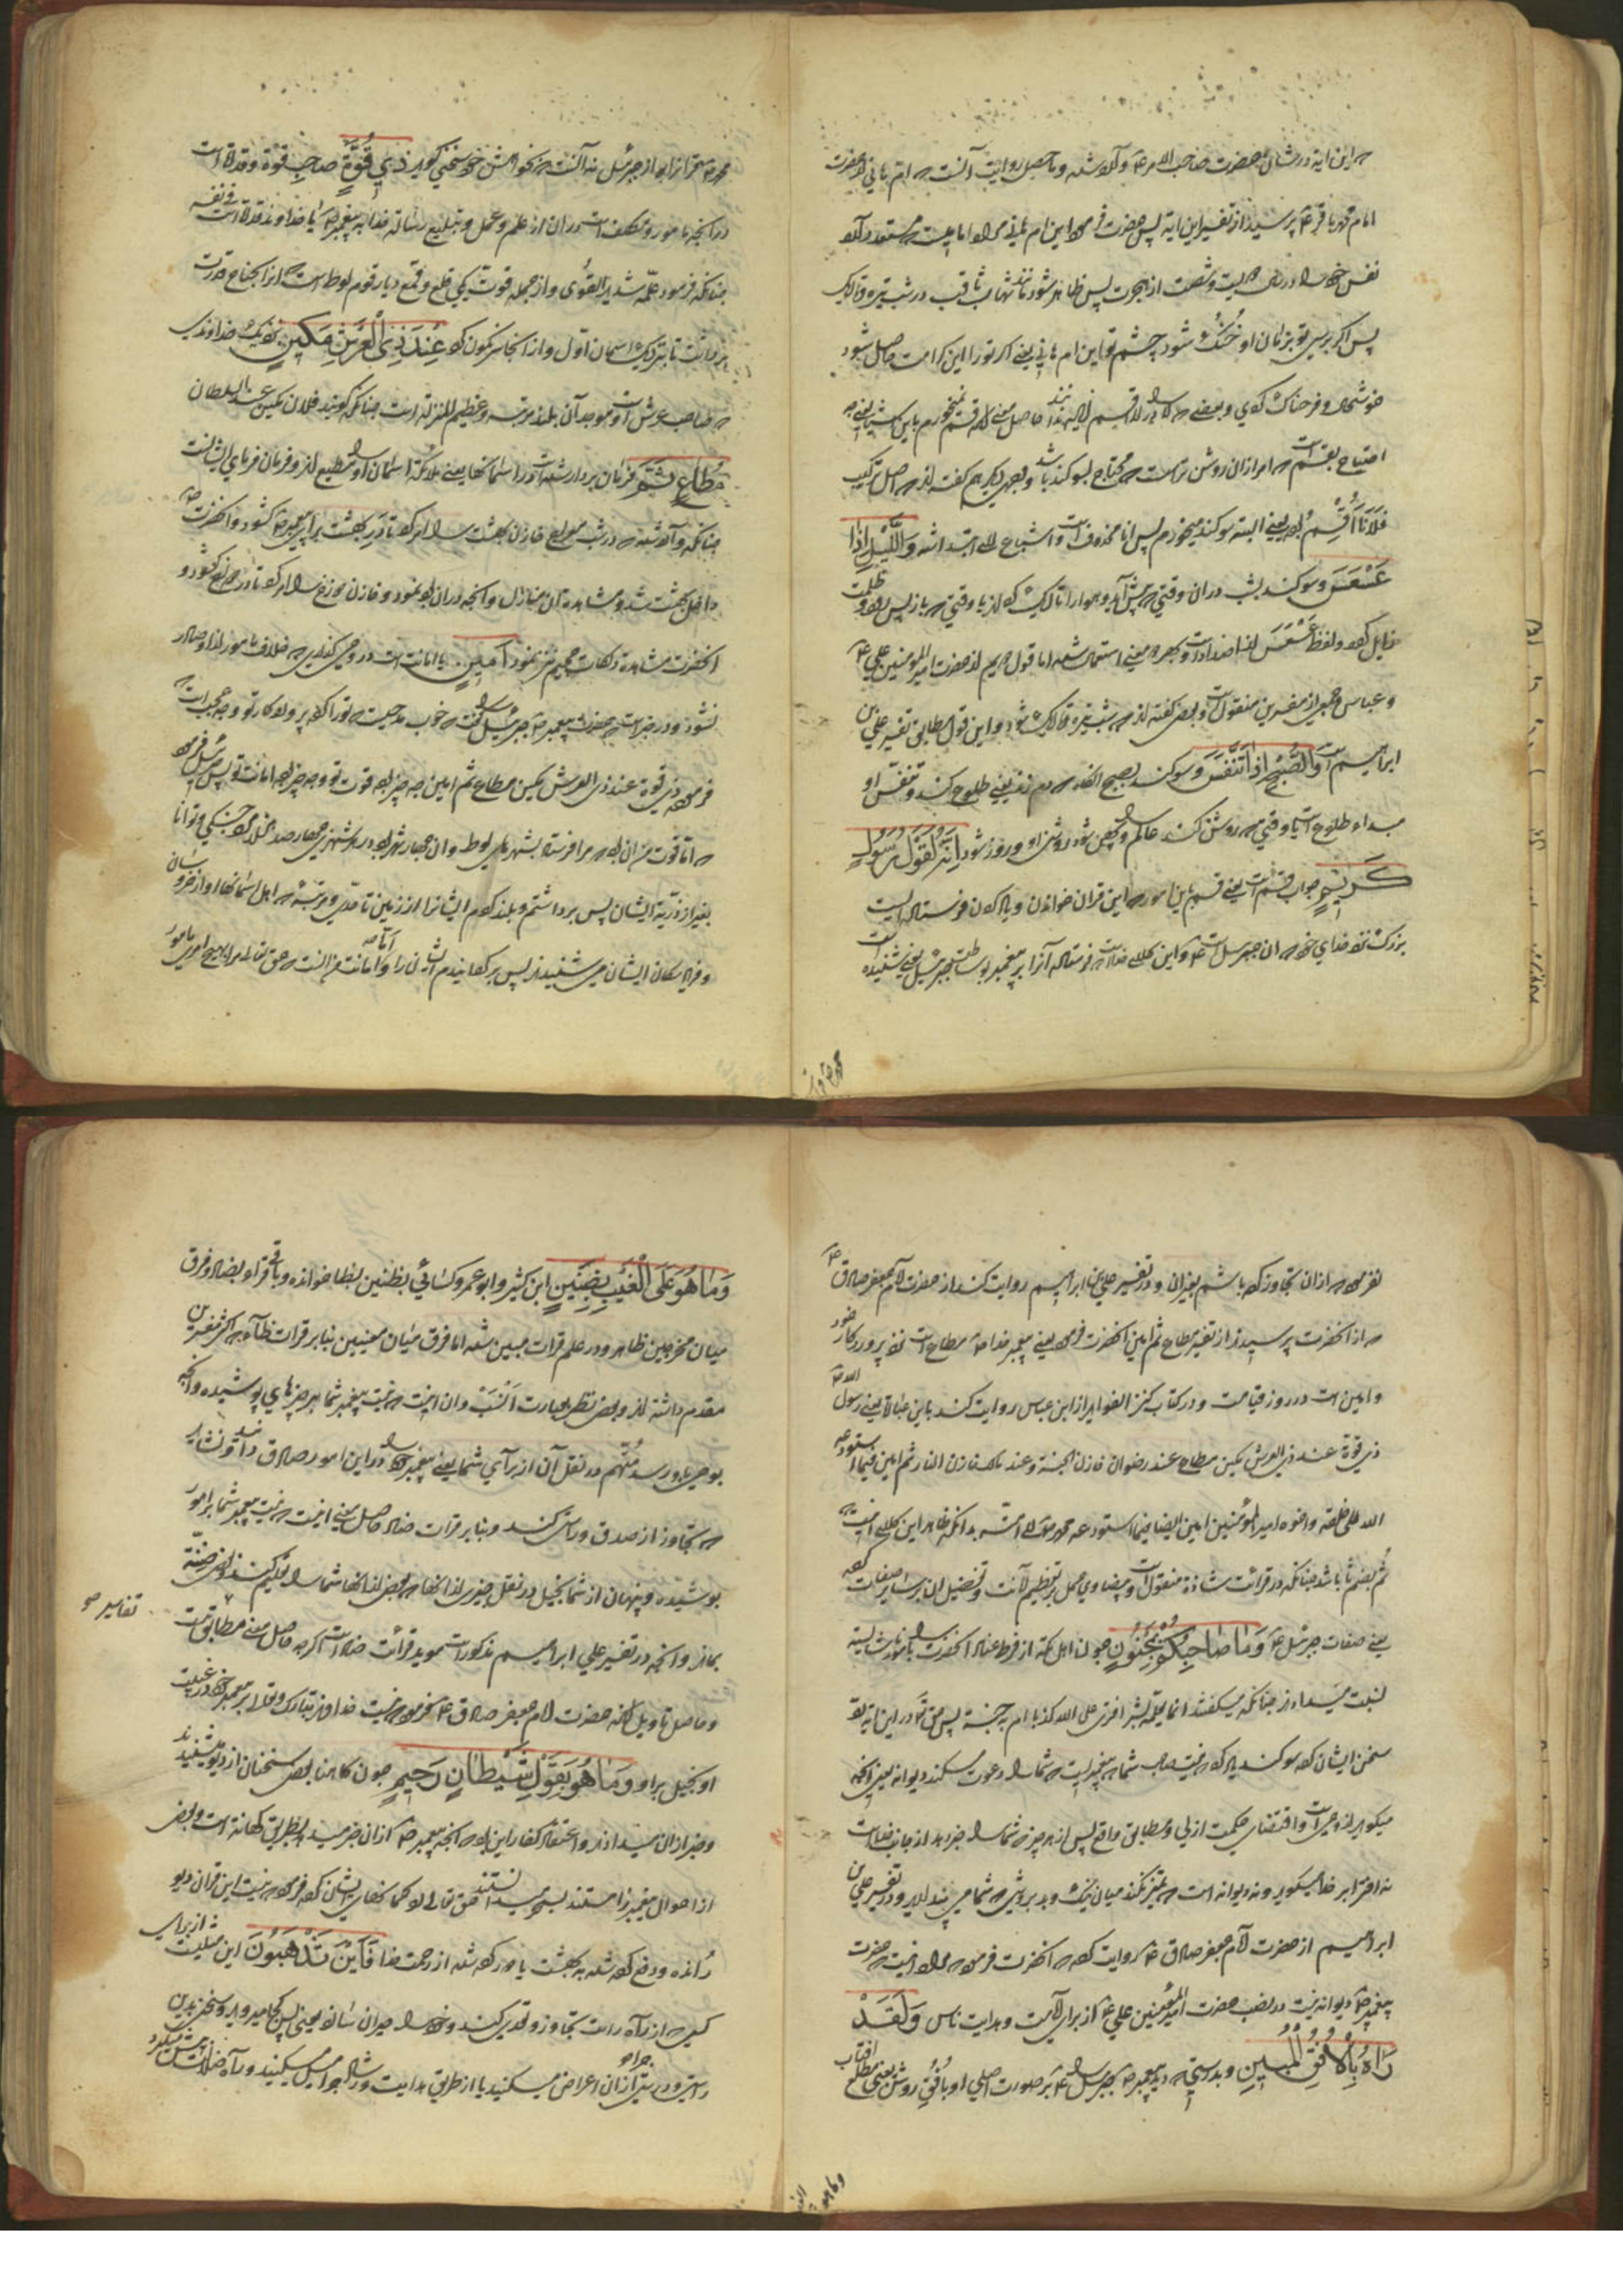 که این ایه در شان حضرت صاحب الامر ع م وارد شده و ما حصل روایت آنست که ام هانی از حضرت
امام محمد باقر ع م پرسید از تفسیر این ایه پس حضرت فرمود این ام هانی مراد امامیست که مستور دارد
نفس خود را در سال دویست و شصت از هجرت پس ظاهر شود مانند شهاب ثاقب در شب تیره و تاریک
پس اگر برسی تو بزمان او خُنُک شود چشم تو این ام هانی یعنی اگر تو را این کرامت حاصل شود
خوشحال و فرحناک گردی و بعضی لا را در لا اقسم زایده دانند حاصل معنی که قسم نمیخورم باین ستارها یعنی چه
احتیاج بقسم است که امر ازان روشن تر است که محتاج بسوکند باشد و بعضی دیگر هم گفته اند که اصل ترکیب
فَلَاَنَا اُقْسِمُ بود یعنی البته سوکند میخورم پس انا محذوف است و اشباع لام ابتدا شده وَاللَّیْلِ اِذَا
عَسْعَسَ و سوکند بشب در ان وقتی که پیش آید و هوا را تاریک کند یا وقتی که باز پس رود و ظلمت
زایل کند و لفظ عَسْعَسَ از اضداد است و بهر دو معنی استعمال شده اما قول دویم از حضرت امیر المومنین علی ع م
و عباس و جمعی از مفسرین منقول است و بعضی گفته اند که شب تیره و تاریک شود و این قول مطابق تفسیر علی بن
ابراهیم است وَالصُّبْحِ اِذَا تَنَفَّسَ و سوکند بصبح انگاه که دم زند یعنی طلوع کند و تنفس او
مبداء طلوع است یا وقتی که روشن کند عالم را و پهن شود روشنی او و روز شود اِنَّهُ لَقَوْلُ رَسُولٍ
کَرِیمٍ جواب قسم است یعنی قسم باین امور که این قران خواندن و یاد کردن فرستاده ایست
بزرک نزد خدای خود که ان جبرئیل است ع م و این کلام خداست که فرستاده آنرا بر پیغمبر بوساطت جبرئیل یعنی شنیده
محمد ص قران
محمد ص قرانرا از جبرئیل نه آنست که از خواهش خود سخنی گوید ذِي قُوَّةٍ صاحب قوّة و قدرة است
در آنچه مامور و مکلف است در ان از علم و عمل و تبلیغ رسالة خدا به پیغمبران یا خداوند قدرة است فی نفسه
چنانکه فرمود علّمه شدید القُوی و از جمله قوت یکی قلع و قمع دیار قوم لوط است که انرا بجناح قدرت
برداشت تا بنزدیک اسمان اول و از انجا سرنکون کرد عِنْدَ ذِي الْعَرْشِ مَکِینٍ نزدیک خداوندی
که صاحب عرش است و موجد آن بلند مرتبه و عظیم المنزلة است چنانکه کویند فلان مکین عند السلطان
مُطَاعٍ ثَمَّ فرمان بردار شده است در اسمانها یعنی ملائکة اسمان او را مطیع اند و فرمان فرمای ایشانست
چنانکه وارد شده که در شب معراج خازن بهشت را امر کرد تا در بهشت برای پیغمبر ص کشود و انحضرت ص
داخل بهشت شد و مشاهده آن منازل و آنچه در ان بود نمود و خازن دوزخ را امر کرد تا در دوزخ کشود و
انحضرت مشاهدة درکات جحیم نیز نمود اَمِینٍ با امانت است در وحی گذاری که خلاف مامور از او صادر
نشود و در خبر است که حضرت پیغمبر ص جبرئیل را گفت که خوب مدحیست تو را که پروردکار تو وجه عجب است که
فرموده ذی قوة عند ذی العرش مکین مطاع ثم امین چه چیز بود قوت تو و چه چیز بود امانت تو پس جبرئیل فرمود
که اما قوت من ان بود که مرا فرستاد بشهرهای لوط و ان چهار شهر بود در هر شهری چهار صد هزار مرد جنکی و توانا
بغیر از ذریة ایشان پس برداشتم و بلند کردم ایشانرا از زمین تا حدّی و مرتبة که اهل اسمانها اواز خروسان
و فریاد سکان ایشان می شنیدند پس برکردانیدم ایشان را و اما امانت من آنست که حق تعالی مرا بهیچ امری مامور
نفرمود که از ان تجاوز کرده باشم بغیر ان و در تفسیر علی بن ابراهیم روایت کند از حضرت امام جعفر صادق ع م
که از انحضرت پرسیدند از تفسیر مطاع ثم امین انحضرت فرمود یعنی پیغمبر خدا ص مطاع است نزد پروردکار خود
و امین است در روز قیامت و در کتاب کنز الفواید از ابن عباس روایت کند باین عبارة یعنی رسول الله ص
ذی قوة عند ذی العرش مکین مطاع عند رضوان خازن الجنة و عند مالک خازن النار ثم امین فیما استودعه
الله الی خلقه و اخوه امیر المؤمنین امین ایضا فیما استودعه محمد ص الی امّته بدانکه ظاهر این کلام اینست که
ثُم بضم ثا باشد چنانکه در قرائت شاذة منقول است و بیضاوی حمل بر تعظیم امانت و تفضیل ان بر سایر صفات کرده
یعنی صفات جبرئیل ع م وَمَا صَاحِبُکُمْ بِمَجْنُونٍ چون اهل مکة از فرط عناد انحضرت را بامور ناشایسته
نسبت میدادند چنانکه میکفتند انما یعلمه بشر افتری علی الله کذبا ام به جنة پس حق تعالی در این ایه رد
سخن ایشان کرد سوکند یاد کرد که نیست صاحب شما که پیغمبر است که شما را دعوت میکند دیوانه یعنی آنچه
میکوید از وحی است و اقتضای حکمت ازلی و مطابق واقع پس از هر چیز که شما را خبر دهد از جانب خداست
نه افترا بر خدا میکوید و نه دیوانه است که تمیز نکند میان نیک و بد بروشی که شما می پندارید و در تفسیر علی بن
ابراهیم از حضرت امام جعفر صادق ع م روایت کرده که انحضرت فرمود که مراد اینست که حضرت
پیغمبر ص دیوانه نیست در نصب حضرت امیر المؤمنین علی ع م از برای امامت و هدایت ناس وَلَقَدْ
رَاٰهُ بِالْاُفُقِ الْمُبِینِ و بدرستی که دید پیغمبر ص جبرئیل را ع م بر صورت اصلی او باُفُق روشن یعنی مطلع افتاب
وما هو علی الغیب
وَمَا هُوَ عَلَی الْغَیْبِ بِضَنِینٍ ابن کثیر و ابو عمرو و کسائی بظنین بظا خوانده و باقی قراء بضاد و فرق
میان مخرجین ظاهر و در علم قرات مبین شده اما فرق میان معنیین بنا بر قرات ظاء که اکثر مفسرین
مقدم داشته اند و بعضی نظر بعبارت اَنسَبْ و ان اینست که نیست پیغمبر شما بر چیزهای پوشیده و انچه
بوحی باو رسد مُتَّهم در نقل آن از برای شما یعنی پیغمبر خدا را در این امور صادق دانند و نشاید
که تجاوز از صدق و راستی کند و بنا بر قرات ضاد حاصل معنی اینست که نیست پیغمبر شما بر امور
پوشیده و پنهان از شما بخیل در نقل چیزی از انها که بعضی از انها شما را تعلیم کند و بعض ضنّة
نماز و آنچه در تفسیر علی ابراهیم مذکور است موید قرائت ضاد است اکرچه حاصل معنی مطابق است
تفاسیر صح
و حاصل تاویل آنکه حضرت امام جعفر صادق ع م فرمود که نیست خداوند تبارک و تعالی بر پیغمبر خود در غیبت
او بخیل بر او وَمَا هُوَ بِقَوْلِ شَیْطَانٍ رَجِیمٍ چون کاهنان بعض سخنان از دیو شنیدند
و خبر از ان میدادند و اعتقاد کفار این بود که آنچه پیغمبر ص از ان خبر میدهد بطریق کهانة است و بعضی
از احوال پیغمبر را مستند بسحر میدانستند حق تعالی رد کمانهای ایشان کرد فرمود که نیست این قران دیو
رانده و دفع کرده شده به بهشت یا دور کرده شده از رحمت خدا فَاَیْنَ تَذْهَبُونَ این مثلیست از برای
کسی که از راه راست تجاوز و تعدی کند و خود را حیران سازد یعنی پس کجا میروید و سخن بدین
راستی و درستی از ان چرا اعراض میکنید یا از طریق هدایت و رشاد چرا میل میکنید و راه ضلالت پیش میکیرید